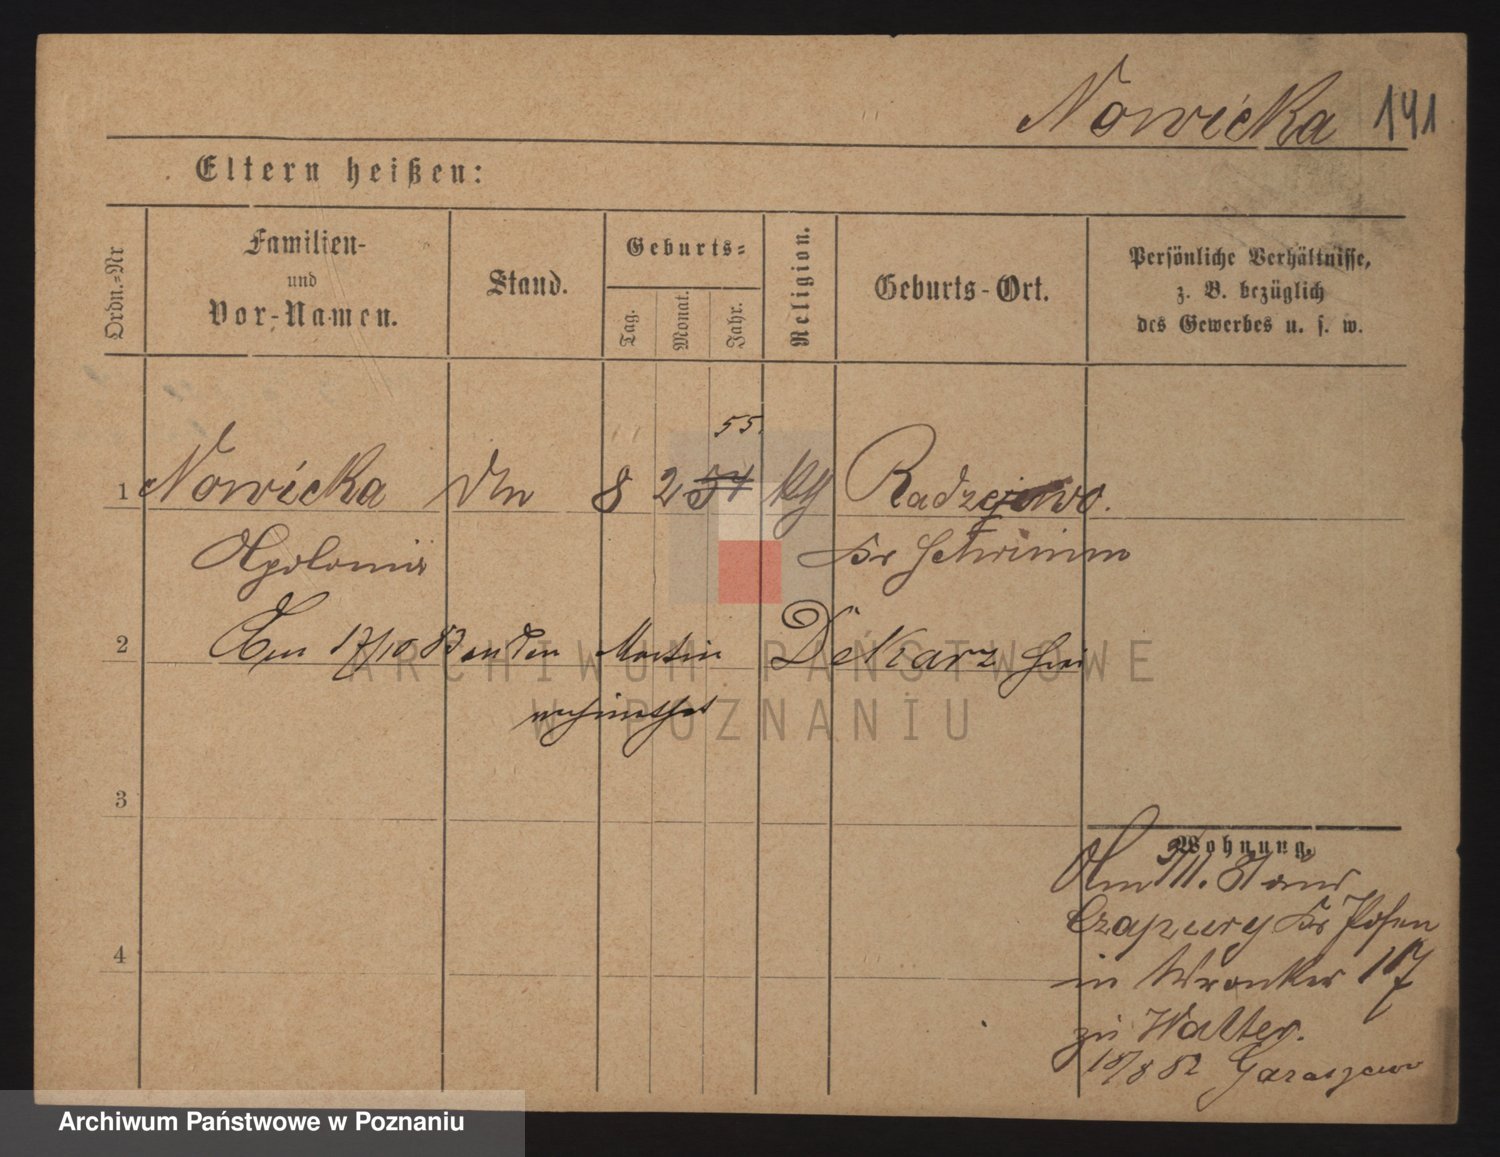 Nowicka 141
Eltern heißen:
Ordn.-Nr
Familien-
und
Vor-Namen.
Stand.
Geburts-
Tag.
Monat.
Jahr.
Religion.
Geburts-Ort.
Persönliche Verhältnisse,
z. B. bezüglich
des Gewerbes u. s. w.
55.
1 Nowicka 8 2 54 Radzejewo.
Apolonia Kr Schrimm
2 Am 17/10 83 an den Martin Dekarz hier
3
Wohnung.
Am 3/11. 81 aus
Czapury Kr Posen
4
in Wronker 17
zu Walter.
18/8 82 Garaszewo
ARCHIWUM PAŃSTWOWE
W POZNANIU
Archiwum Państwowe w Poznaniu